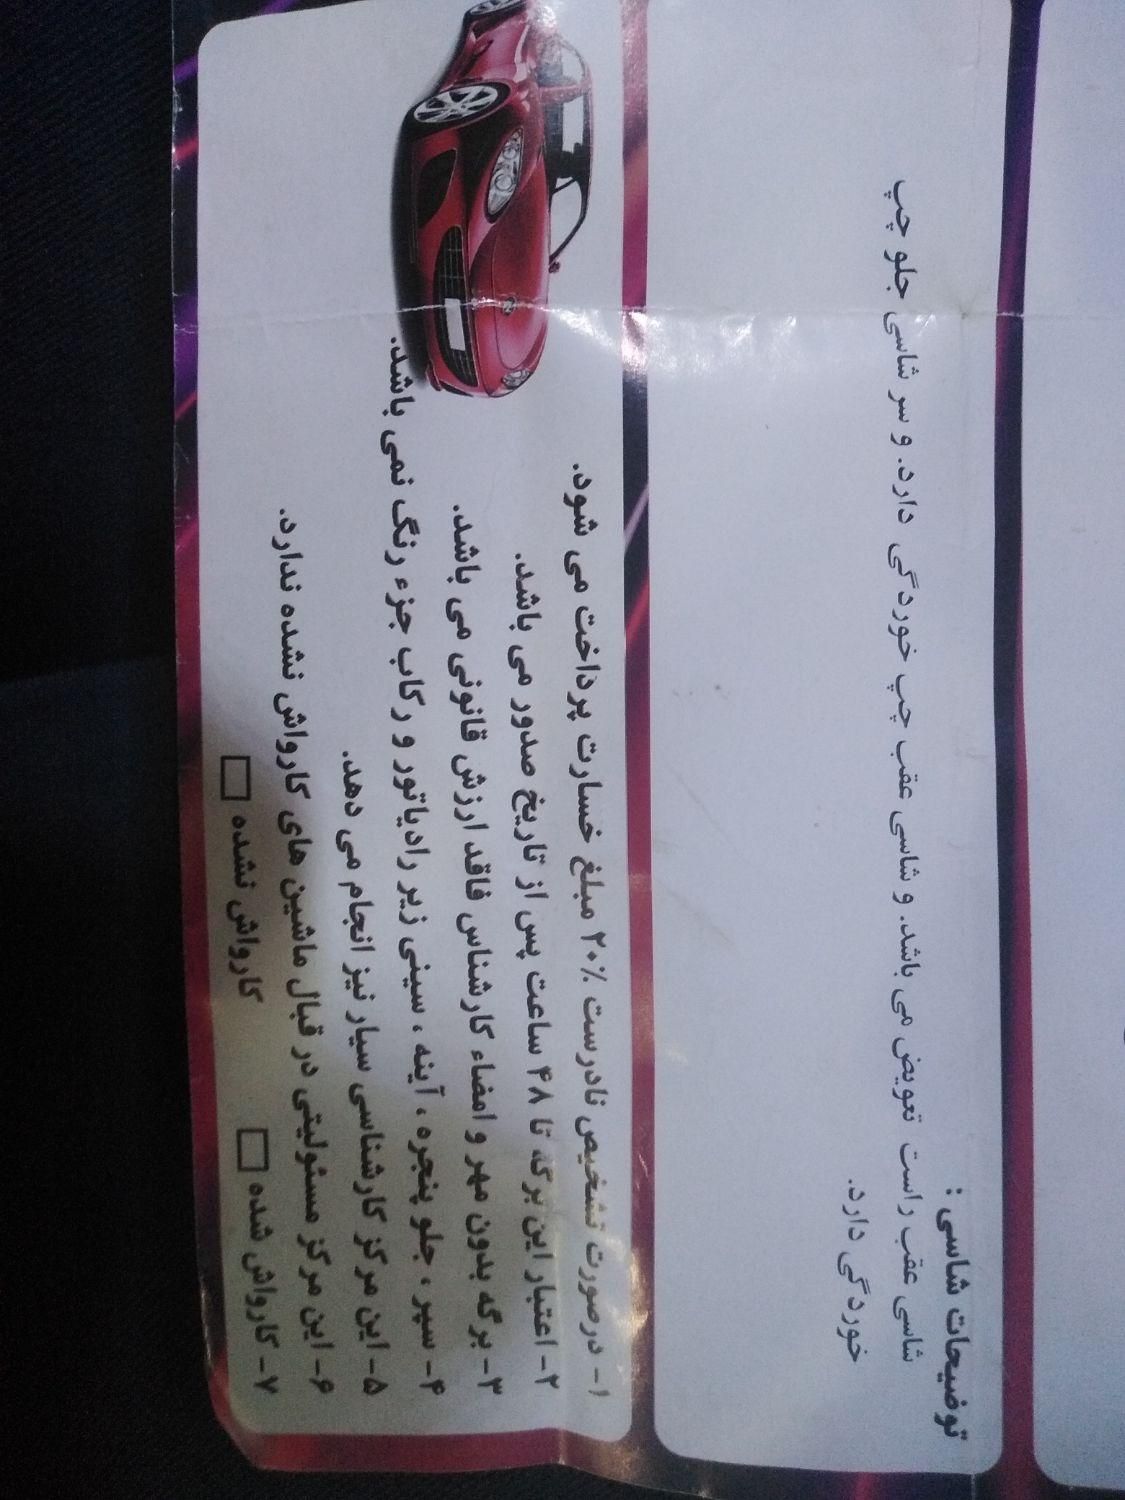 توضیحات شاسی :
شاسی عقب راست تعویض می باشد. و شاسی عقب چپ خوردگی دارد. و سر شاسی جلو چپ
خوردگی دارد.
۱- درصورت تشخیص نادرست ۲۰٪ مبلغ خسارت پرداخت می شود.
۲- اعتبار این برگه تا ۴۸ ساعت پس از تاریخ صدور می باشد.
۳- برگه بدون مهر و امضاء کارشناس فاقد ارزش قانونی می باشد.
۴- سپر ، جلو پنجره ، آینه ، سینی زیر رادیاتور و رکاب جزء رنگ نمی باشد.
۵- این مرکز کارشناسی سیار نیز انجام می دهد.
۶- این مرکز مسئولیتی در قبال ماشین های کارواش نشده ندارد.
۷- کارواش شده □ کارواش نشده □